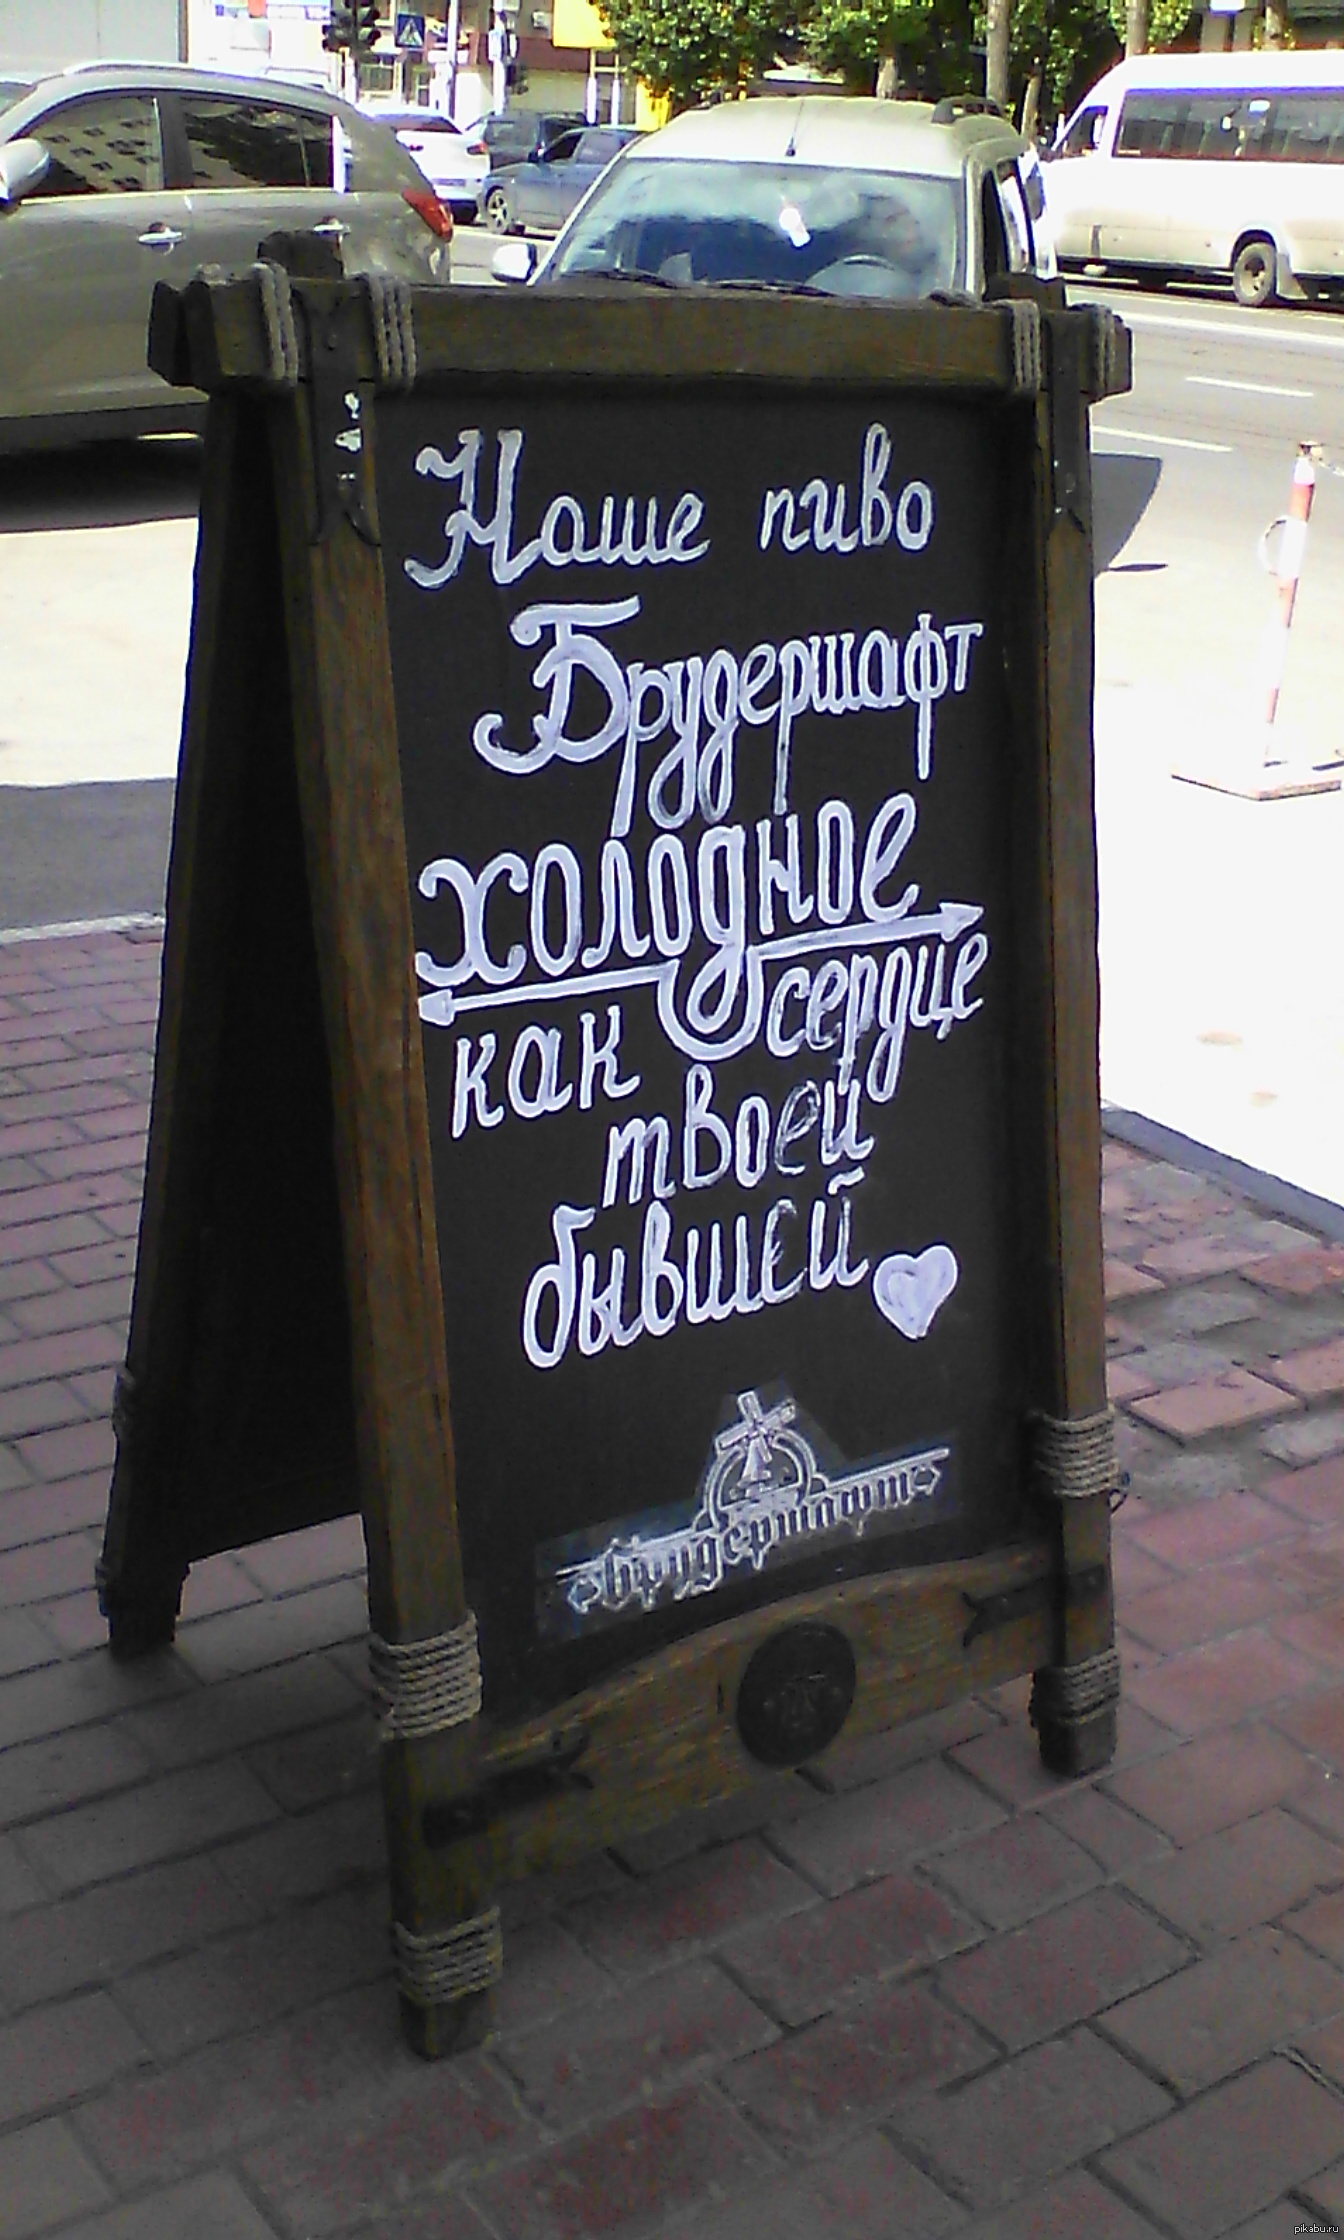 Наше пиво
Брудершафт
холодное
как сердце
твоей
бывшей
Брудершафт
pikabu.ru